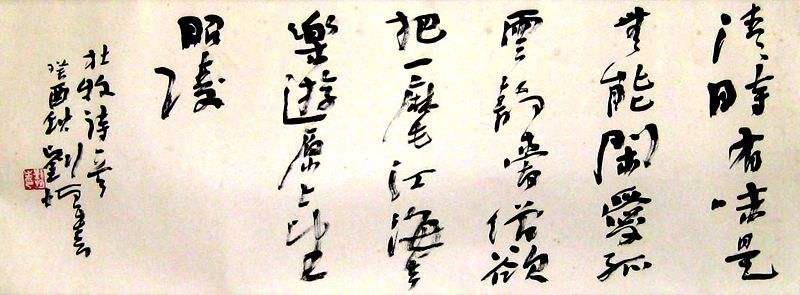 清時有味是
無能閑愛孤
雲靜愛僧欲
把一麾江海去
樂遊原上望
昭陵
杜牧詩一首
癸酉秋劉